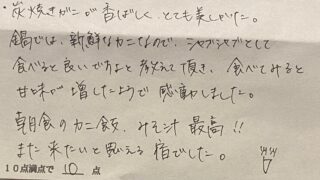 ・炭焼きがニが香ばしく、とても美しかった。
鍋では、新鮮なカニなので、シャブシャブとして
食べると良いですよと教えて頂き、食べてみると
甘味が増したようで感動しました。
朝食のカニ飯、みそ汁 最高!!
また来たいと思える宿でした。
10点満点で 10 点